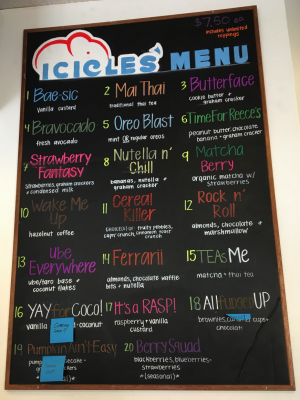 $7.50 ea
includes unlimited toppings
ICICLES' MENU
1 Bae-sic
vanilla custard
2 Mai Thai
traditional thai tea
3 Butterface
cookie butter +
graham cracker
4 Bravocado
fresh avocado
5 Oreo Blast
mint OR regular oreos
6 Time For Reece's
peanut butter, chocolate
banana + graham cracker
7 Strawberry
Fantasy
Strawberries, graham crackers
+ condensed milk
8 Nutella n'
Chill
bananas, nutella +
graham cracker
9 Matcha
Berry
organic matcha w/
strawberries
10 Wake Me
Up
hazelnut coffee
11 Cereal
Killer
fruity pebbles,
capn crunch, cinnamon toast
crunch
12 Rock n'
Roll
almonds, chocolate +
marshmallow
13 Ube
Everywhere
ube/taro base +
coconut flakes
14 Ferrarii
almonds, chocolate waffle
bits + nutella
15 TEAs Me
matcha + thai tea
16 YAY For Coco!
vanilla coconut
17 It's a RASP!
raspberry + vanilla
custard
18 All fudged UP
brownies, caramel cups +
chocolate
19 Pumpkin Ain't Easy
20 Berry Squad
blackberries, blueberries +
strawberries
*(seasonal)*